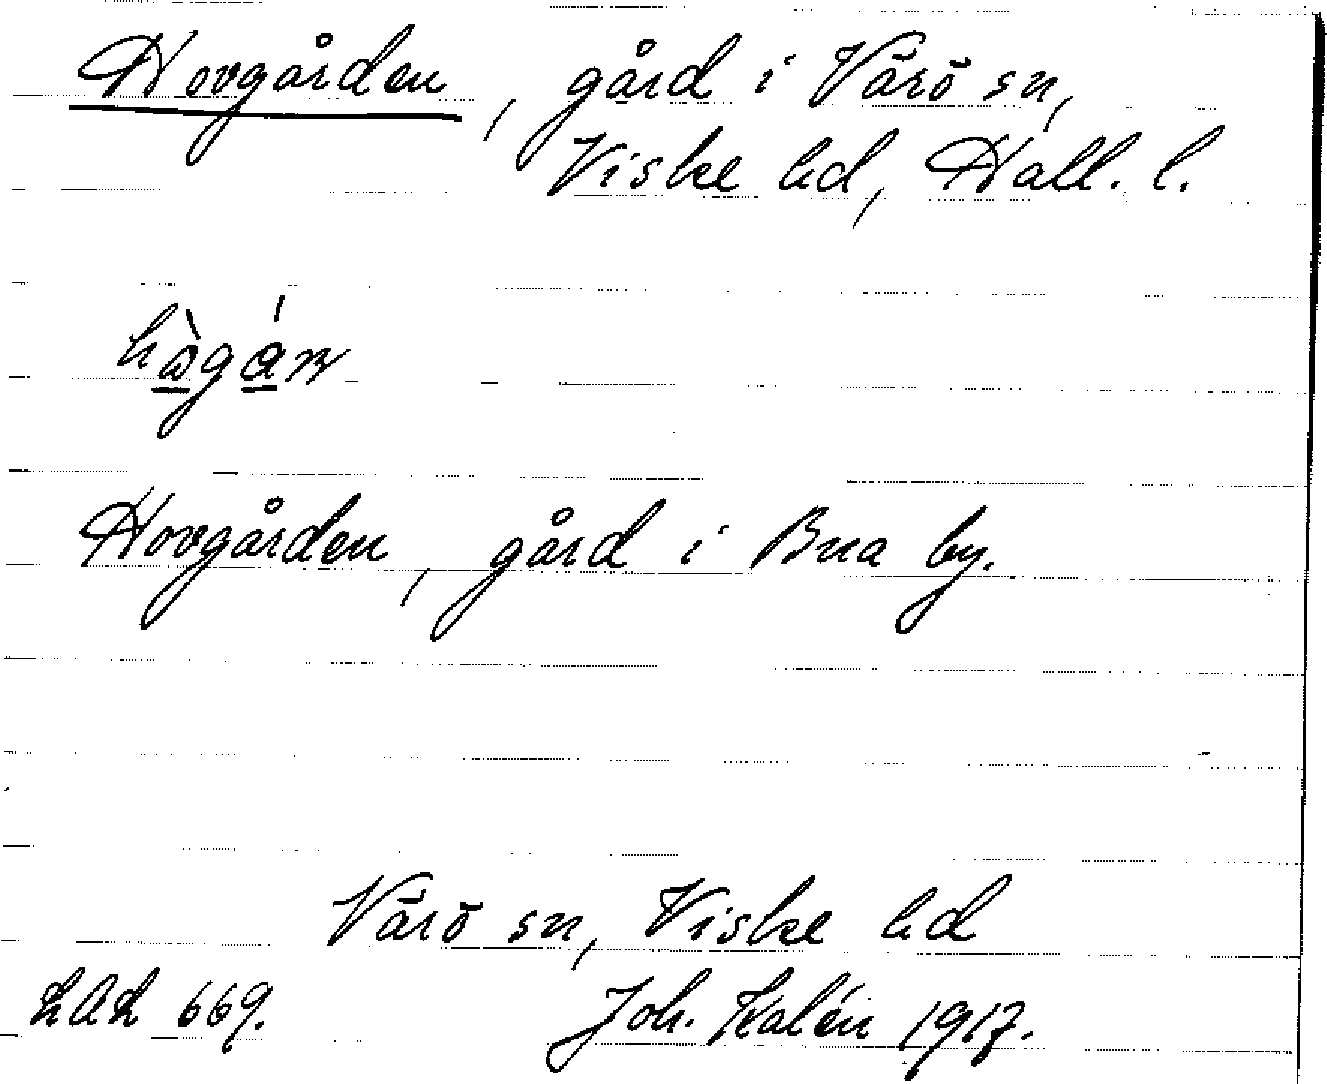 Hovgården, gård i Värö sn,
Viske hd, Hall. l.
hàgán
Hovgården, gård i Bua by.
Värö sn, Viske hd
LAL 669. Joh. Kalén 1917.